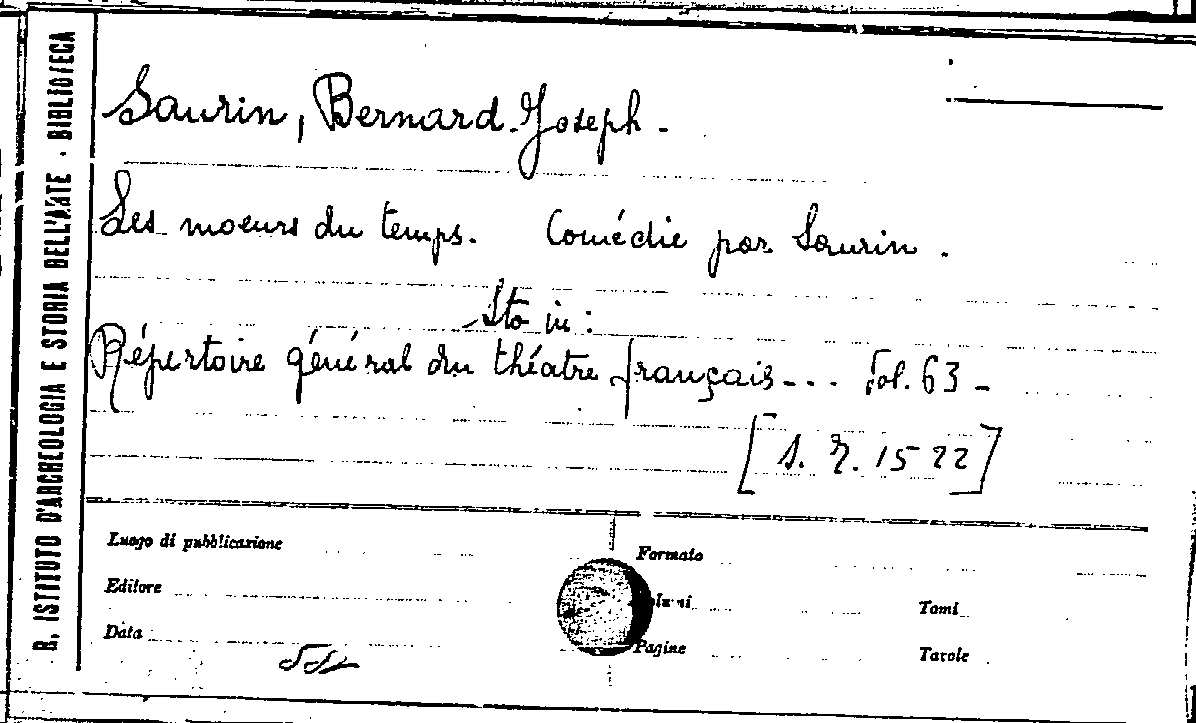 R. ISTITUTO D'ARCHEOLOGIA E STORIA DELL'ARTE - BIBLIOTECA
Saurin, Bernard-Joseph.
Les moeurs du temps. Comédie par Saurin.
Sta in:
Répertoire général du théatre français... Vol. 63 -
[S. R. 1522]
Luogo di pubblicazione
Formato
Editore
Volumi
Tomi
Data
Pagine
Tavole